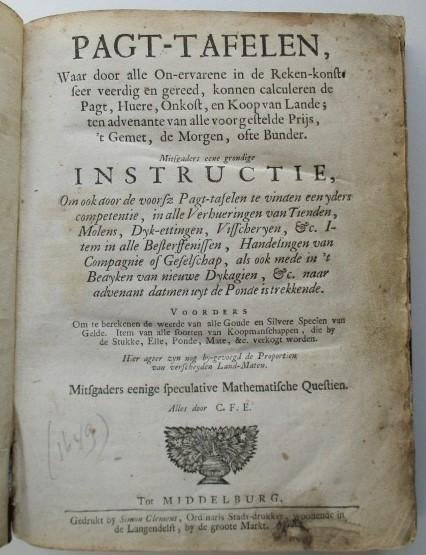 PAGT-TAFELEN,
Waar door alle On-ervarene in de Reken-konst
seer veerdig en gereed, konnen calculeren de
Pagt, Huere, Onkost, en Koop van Lande;
ten advenante van alle voorgestelde Prijs,
't Gemet, de Morgen, ofte Bunder.
Mitsgaders eene grondige
INSTRUCTIE,
Om ook door de voorsz Pagt-tafelen te vinden een yders
competentie, in alle Verhueringen van Tienden,
Molens, Dyk-ettingen, Visscheryen, &c. I-
tem in alle Besterffenissen, Handelingen van
Compagnie of Geselschap, als ook mede in 't
Beayken van nieuwe Dykagien, &c. naar
advenant datmen uyt de Ponde is trekkende.
VOORDERS
Om te berekenen de weerde van alle Goude en Silvere Specien van
Gelde. Item van alle soorten van Koopmanschappen, die by
de Stukke, Elle, Ponde, Mate, &c. verkogt worden.
Hier agter zyn nog by-gevoegd de Proportien
van verscheyden Land-Maten.
Mitsgaders eenige speculative Mathematische Questien.
Alles door C. F. E.
(1649)
Tot MIDDELBURG,
Gedrukt by Simon Clement, Ordinaris Stads-drukker, woonende in
de Langendelft, by de groote Markt.